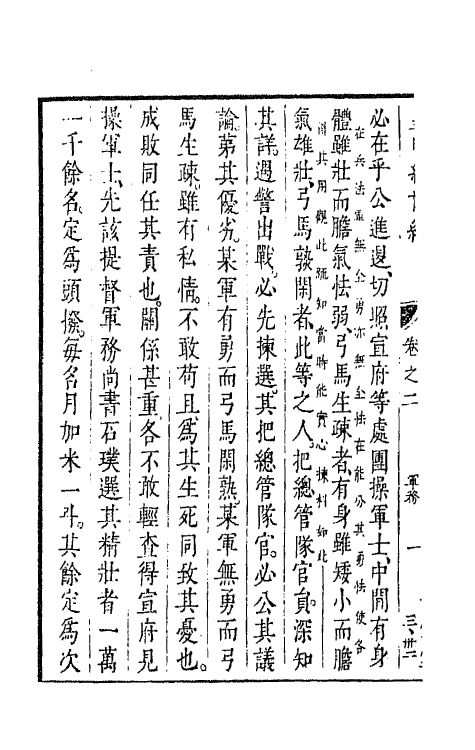 卷之二
軍務
一
必在乎公進退切照宣府等處團操軍士中間有身
在兵法重無全勇亦無全怯在能分其勇怯使各
體雖壯而膽氣怯弱弓馬生疎者有身雖矮小而膽
用其用觀此疏知當時能實心揀料如此
氣雄壯弓馬熟閑者此等之人把總管隊官員深知
其詳遇警出戰必先揀選其把總管隊官必公其議
論第其優劣某軍有勇而弓馬閑熟某軍無勇而弓
馬生疎雖有私情不敢苟且為其生死同致其憂也
成敗同任其責也關係甚重各不敢輕查得宣府見
操軍士先該提督軍務尚書石璞選其精壯者一萬
一千餘名定為頭撥每名月加米一斗其餘定為次